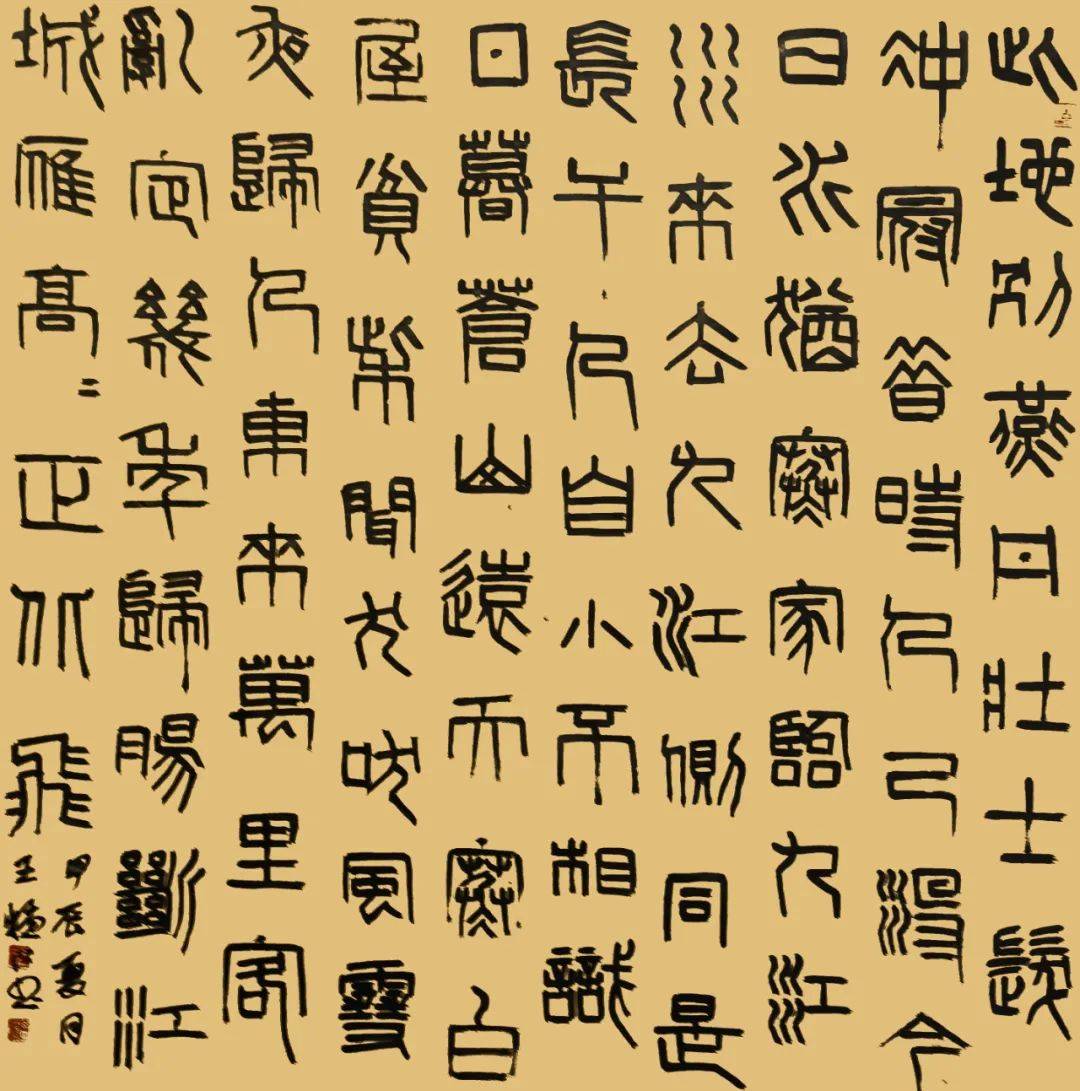 此地別燕丹壯士髮
沖冠昔時人已沒今
日水猶寒家臨九江
水來去九江側同是
長干人自小不相識
日暮蒼山遠天寒白
屋貧柴聞犬吠風雪
夜歸人東來萬里客
亂定幾年歸腸斷江
城雁高〻正北飛
甲辰夏月
王